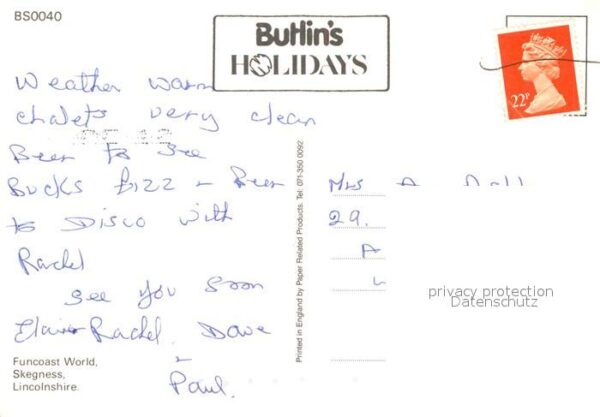 BS0040
Butlin's
HOLIDAYS
22P
Weather warm
chalets very clean
Been to see
Bucks fizz - Been
to Disco with
Rachel
See you soon
Elaine Rachel Dave
Paul.
Funcoast World,
Skegness,
Lincolnshire.
Printed in England by Paper Related Products. Tel: 071-350 0092
Mrs A
29.
A
L
privacy protection
Datenschutz